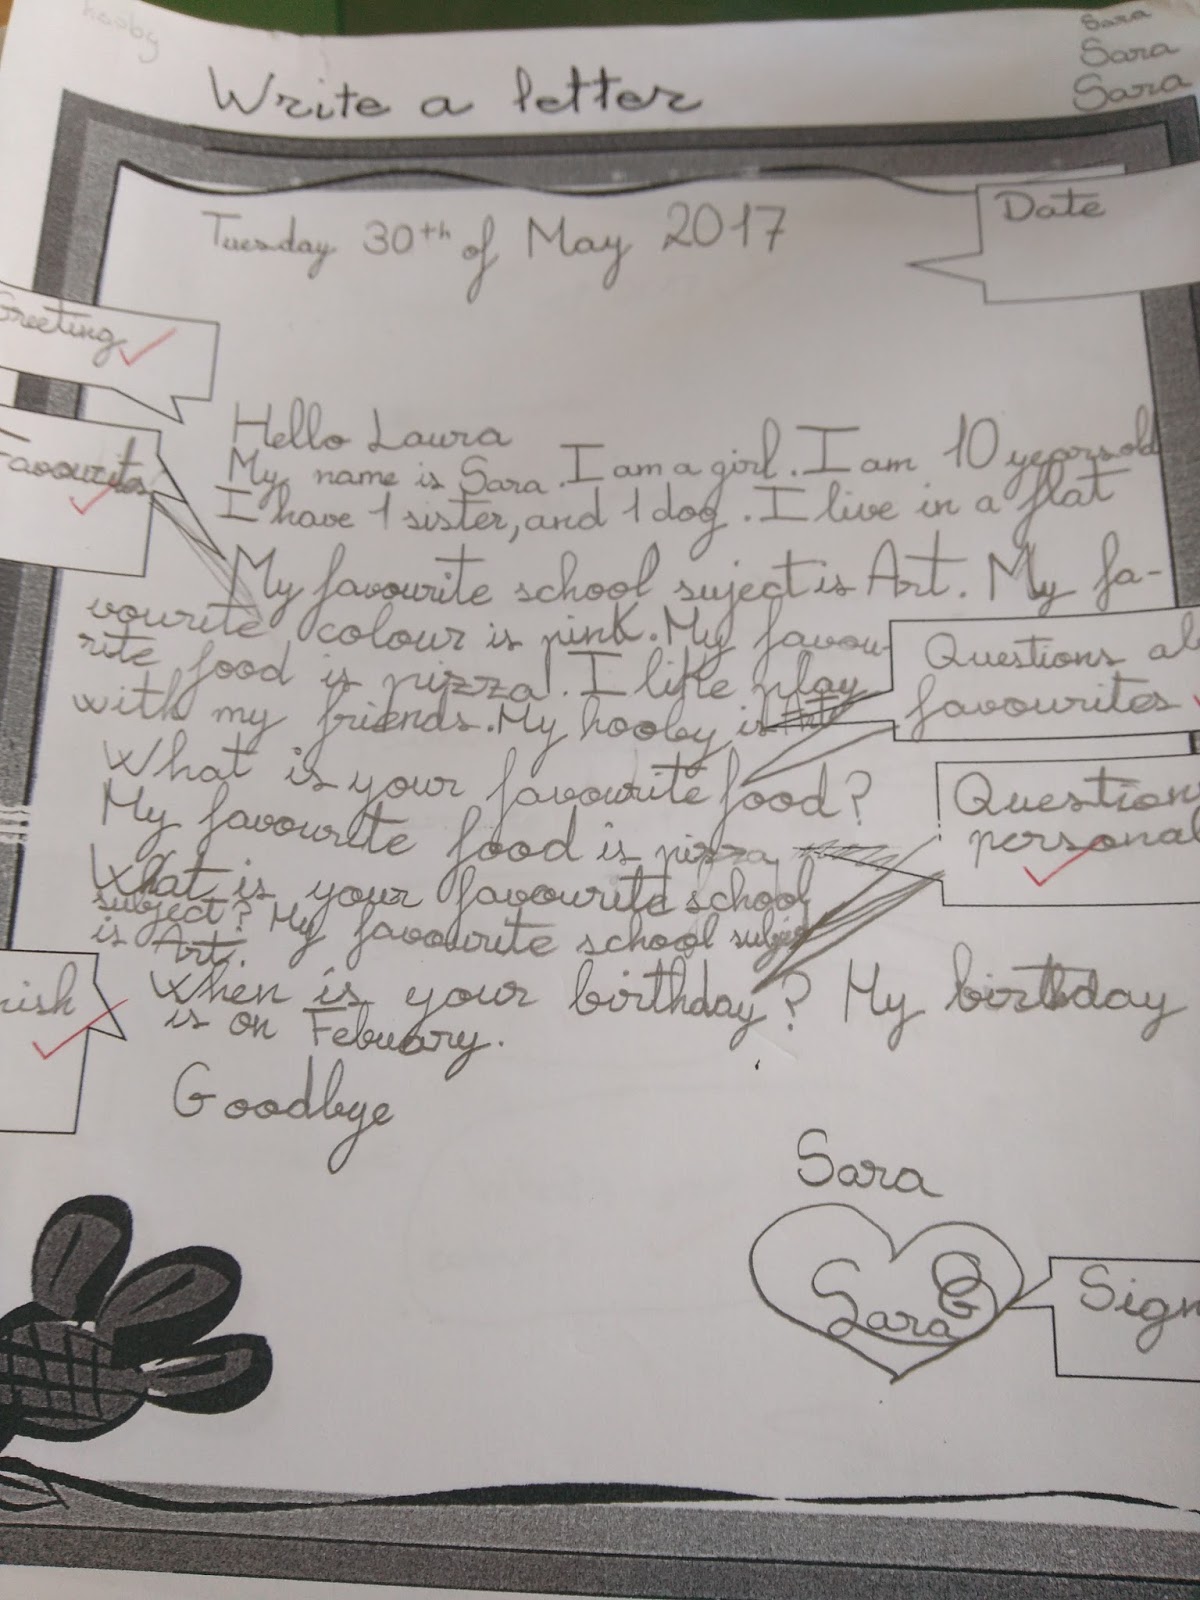 hooby
Sara
Sara
Sara
Write a letter
Date
Tuesday 30th of May 2017
Greeting
Favourites
Hello Laura
My name is Sara. I am a girl. I am 10 years old
I have 1 sister, and 1 dog. I live in a flat
My favourite school suject is Art. My fa-
vourite colour is pink. My favou-
rite food is pizza. I like play
with my friends. My hooby is Art
Questions al
favourites
What is your favourite food?
My favourite food is pizza
Question
personal
What is your favourite school
subject? My favourite school subject
is Art.
nish
When is your birthday? My birthday
is on Febuary.
Goodbye
Sara
Sara
Sign